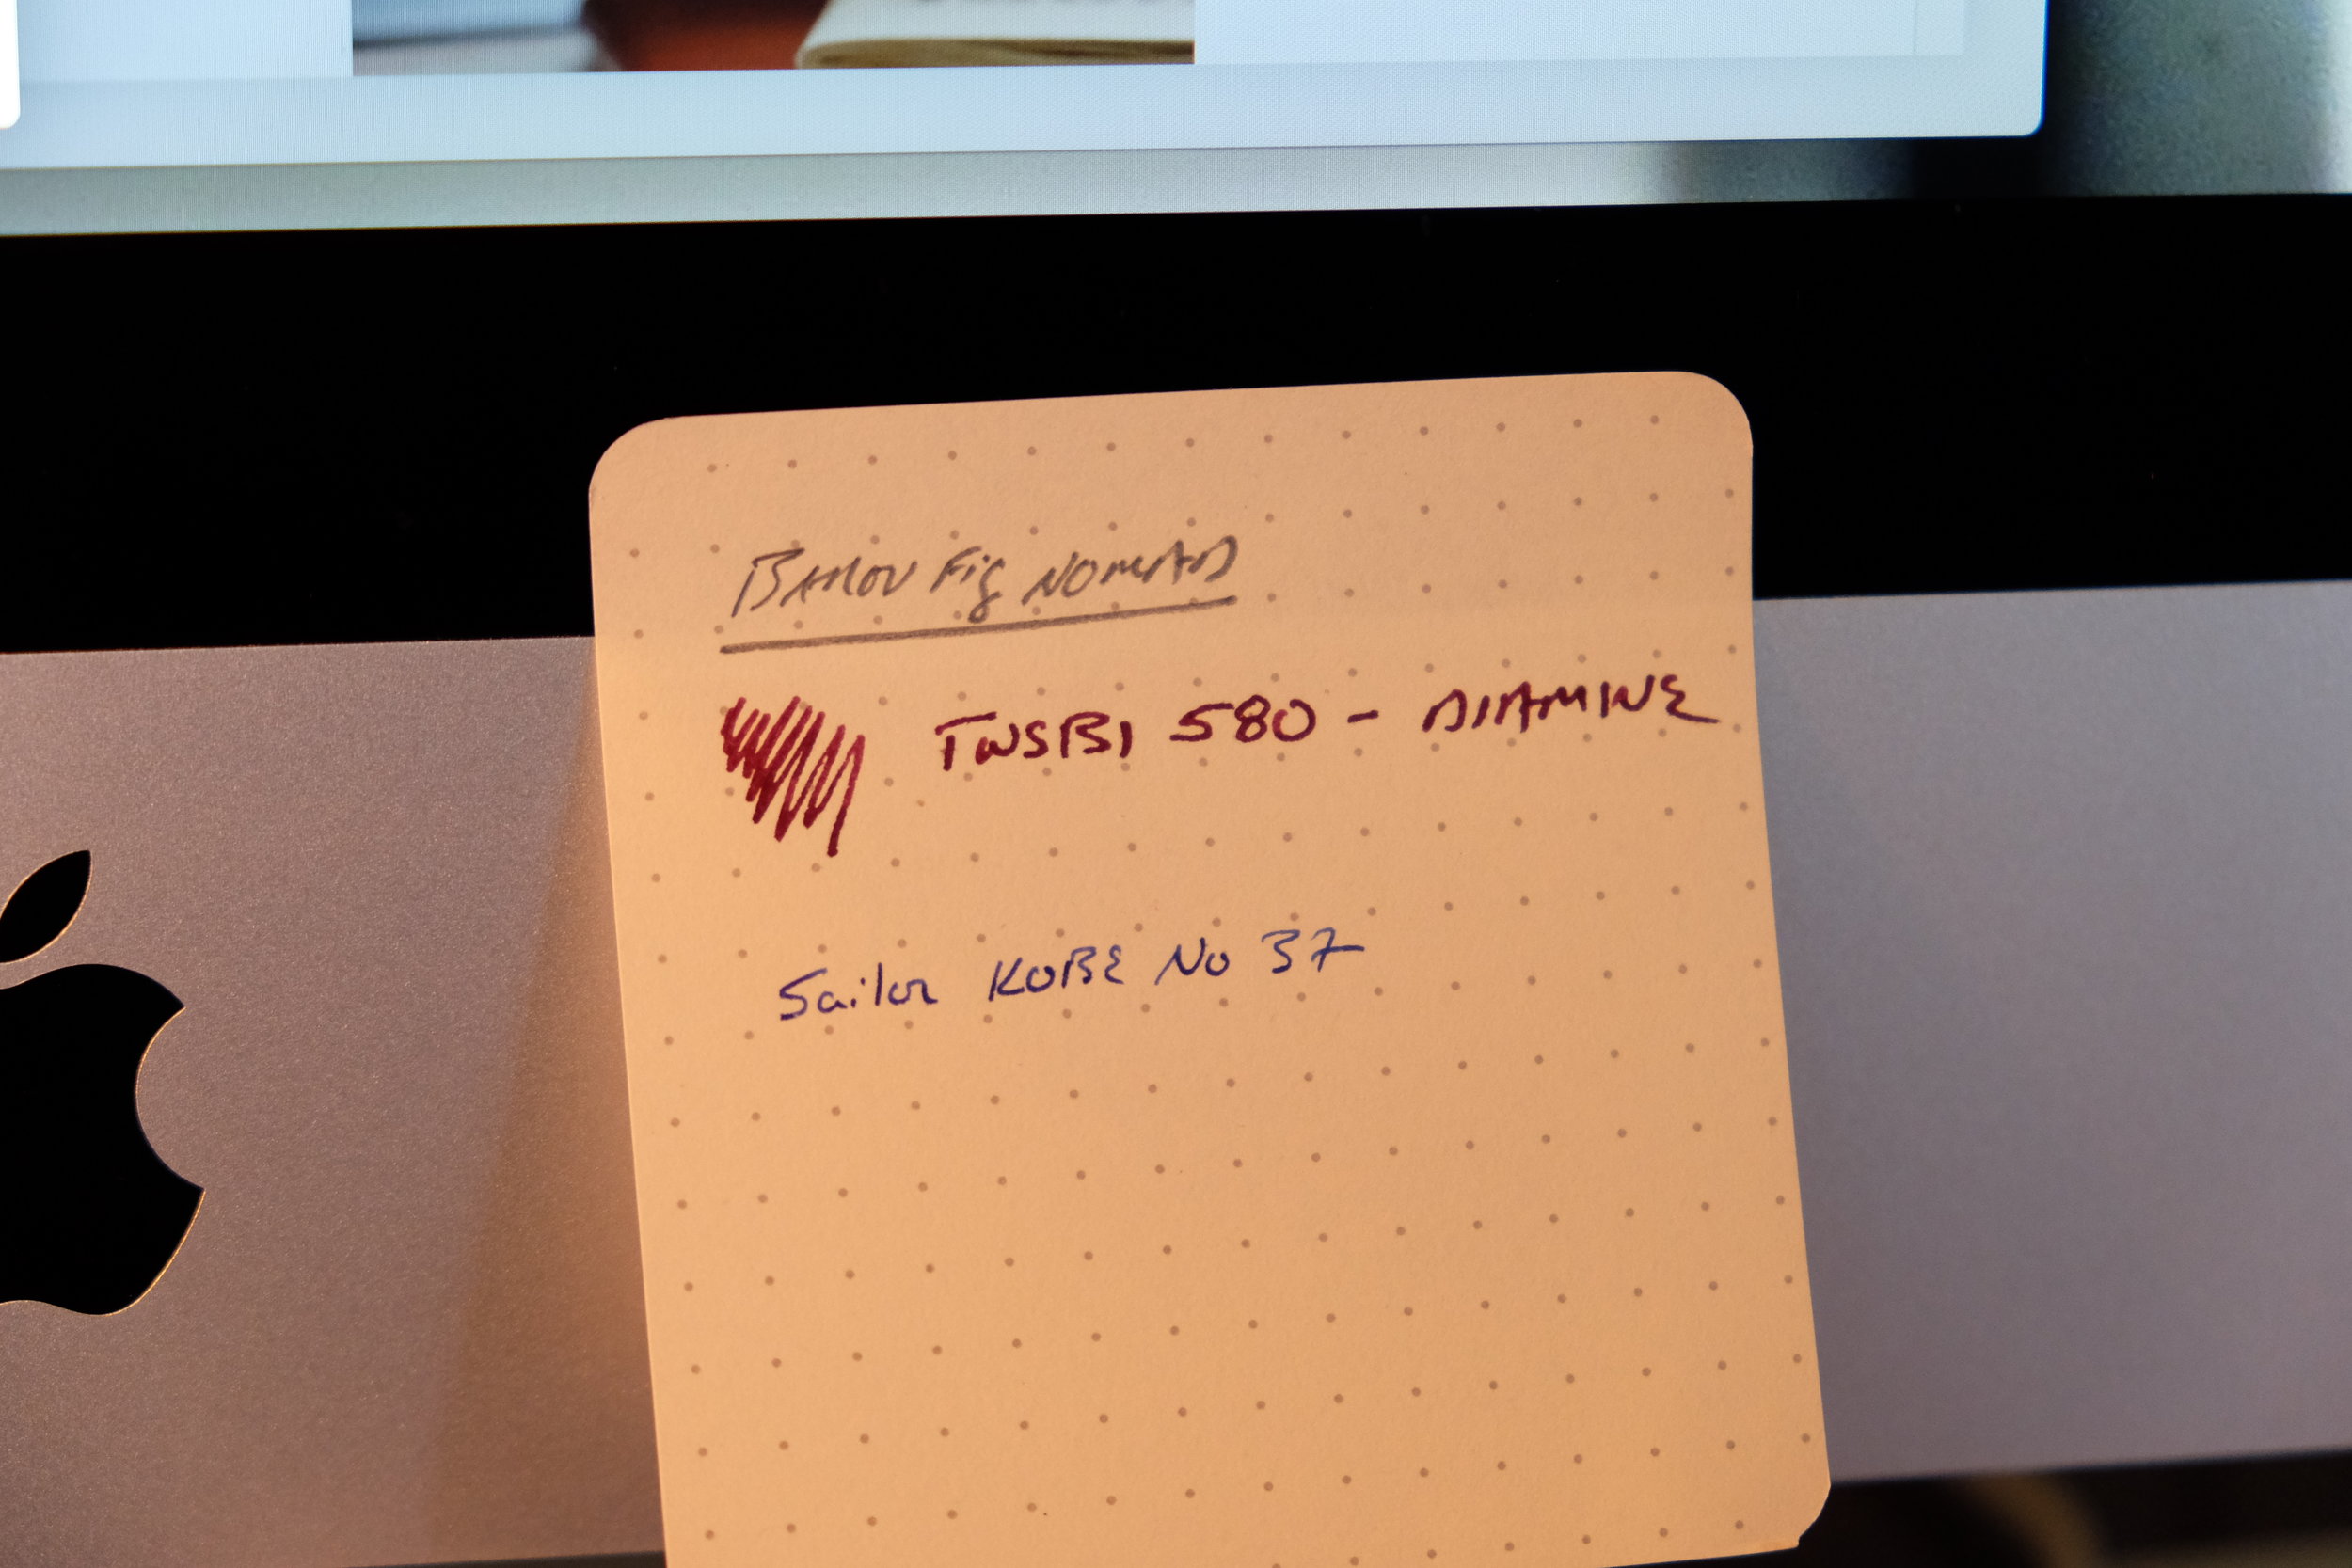 Baron Fig NOMAD
TWSBI 580 - DIAMINE
Sailor KOBE No 37